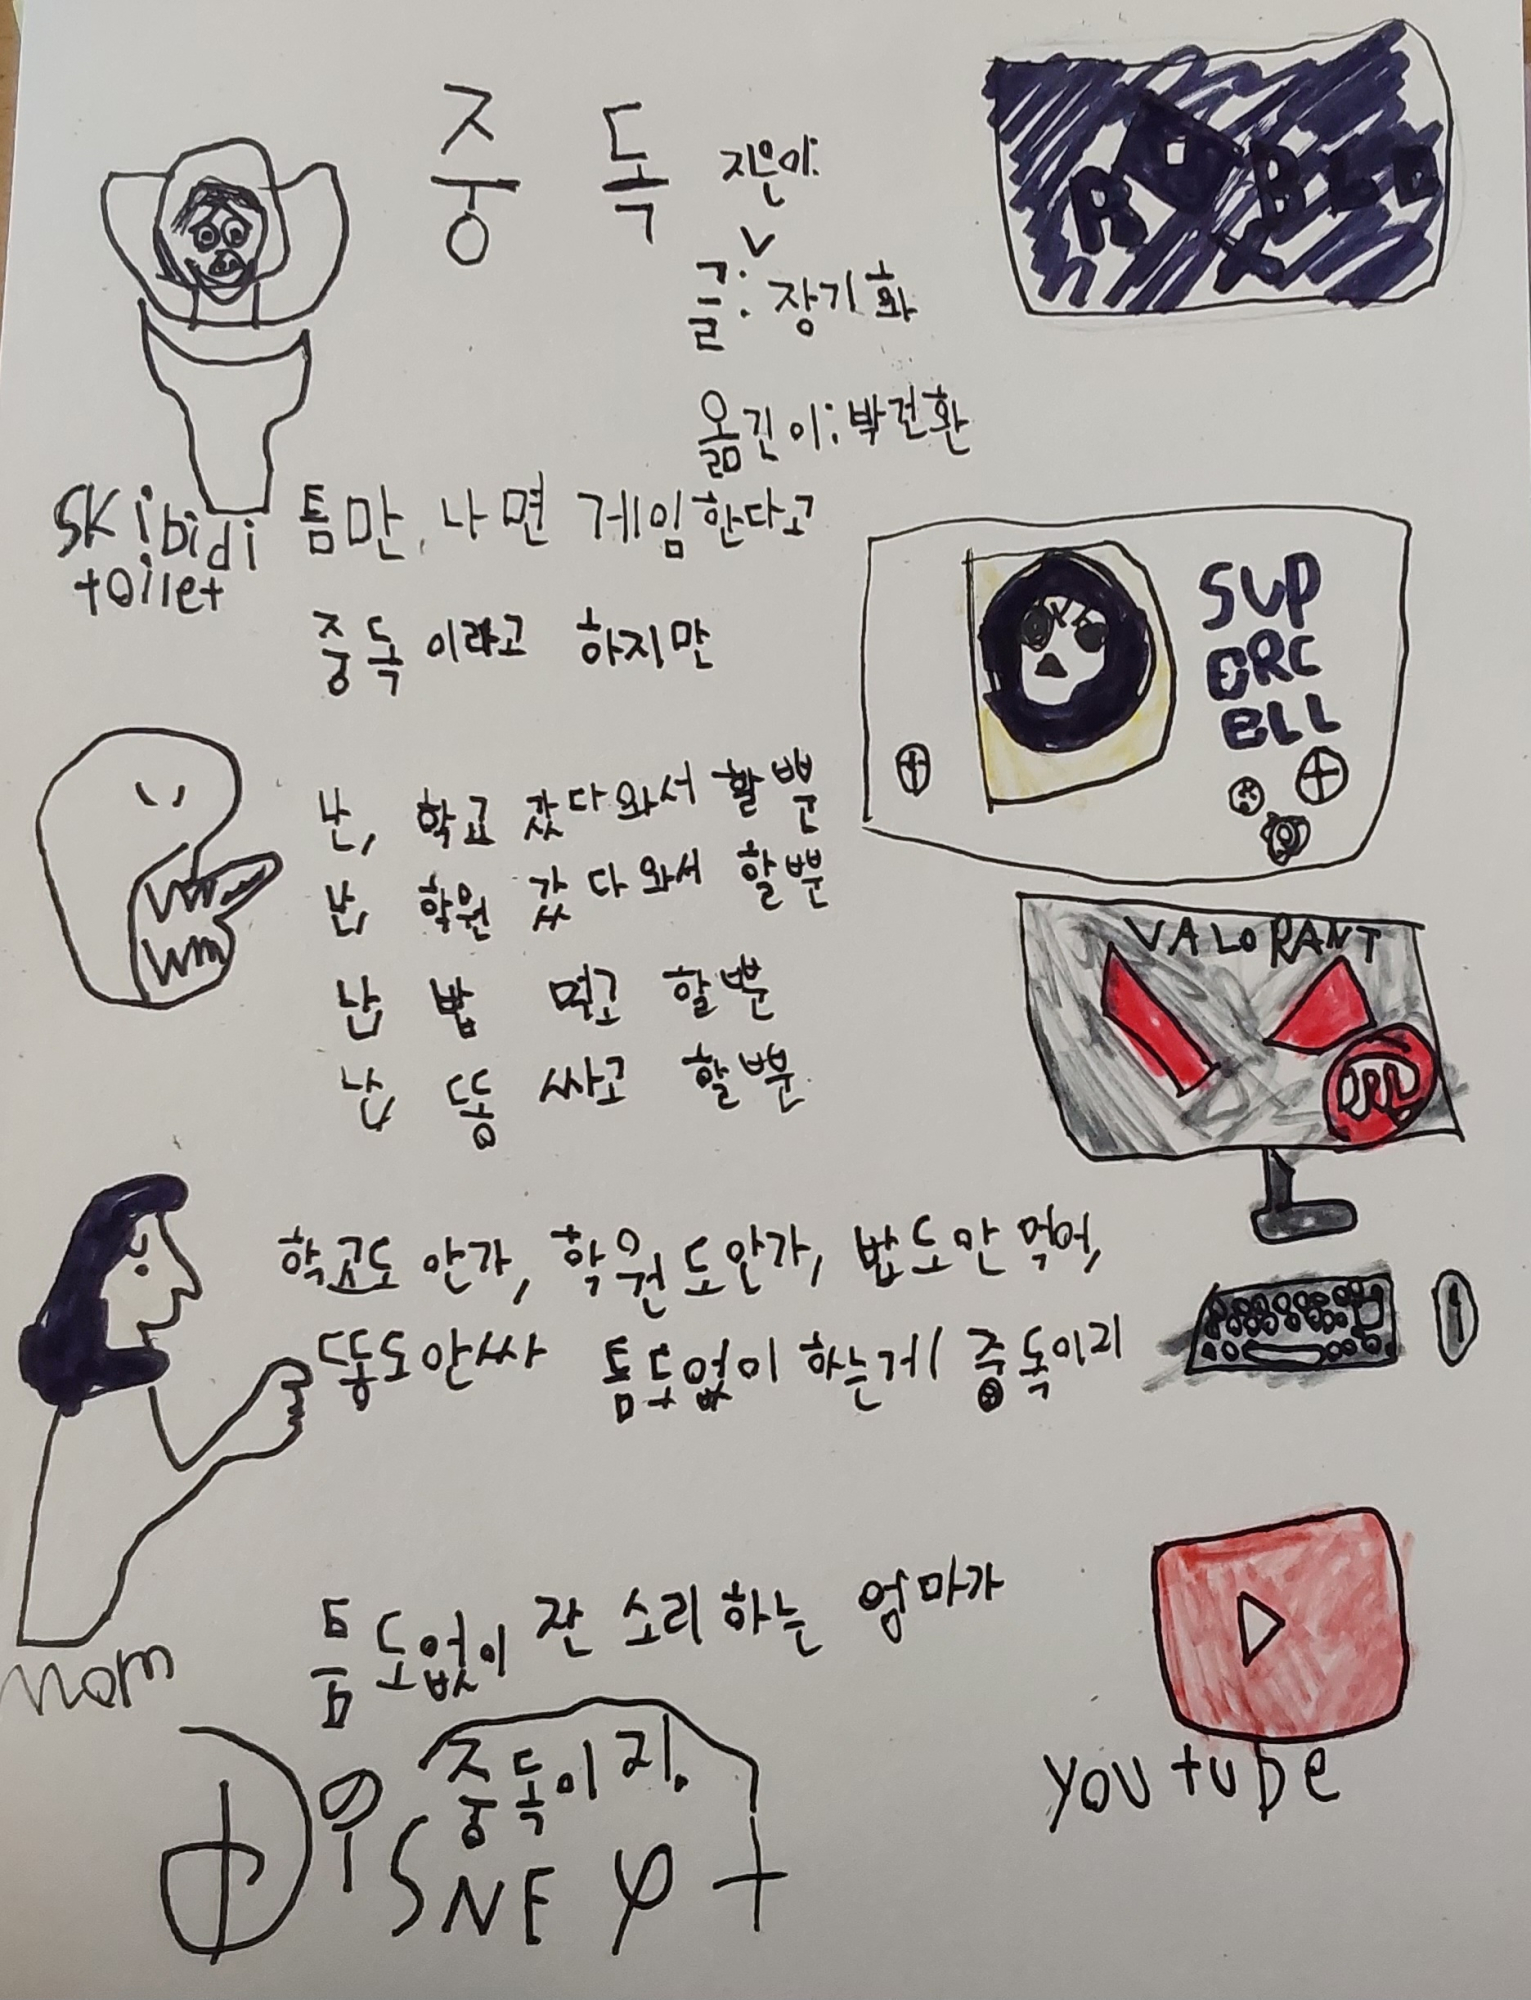 중독
지은이:
글: 장기화
옮긴이: 박건환
ROBLOX
SKibidi
toilet
틈만, 나면 게임한다고
중독이라고 하지만
SUP
ERC
ELL
난, 학교 갔다와서 할뿐
난, 학원 갔다와서 할뿐
난 밥 먹고 할뿐
난 똥 싸고 할뿐
VALORANT
학교도 안가, 학원도안가, 밥도안먹어,
똥도안싸 틈도없이 하는게 중독이지
틈도없이 잔소리하는 엄마가
중독이지.
mom
DiSNEY+
youtube